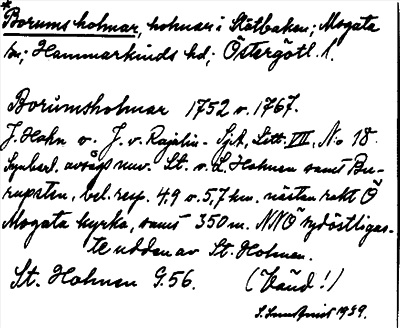 *Borumsholmar, holmar i Slätbaken; Mogata
sn; Hammarkinds hd; Östergötl. l.
Borumsholmar 1752 o. 1767.
J. Hahn o. J. v. Rajalin. SjA, Litt. VII, No 18.
Synberl. avsågs nuv. St. o. L. Holmen samt Bu-
rupsten, bel. resp. 4,9 o. 5,7 km. nästan rakt Ö
Mogata kyrka, samt 350 m. NNÖ sydöstligas-
te udden av St. Holmen.
St. Holmen G.56. (Vänd!)
1939.